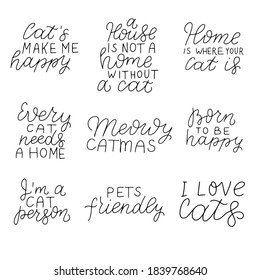 Cat's
MAKE ME
happy
a
House
IS NOT A
home
WITHOUT
a cat
Home
IS WHERE YOUR
cat is
Every
CAT
needs
A HOME
Meowy
CATMAS
Born
TO BE
happy
I'm a
CAT
person
PETS
friendly
I LOVE
Cats
shutterstock
IMAGE ID: 1839768640
www.shutterstock.com